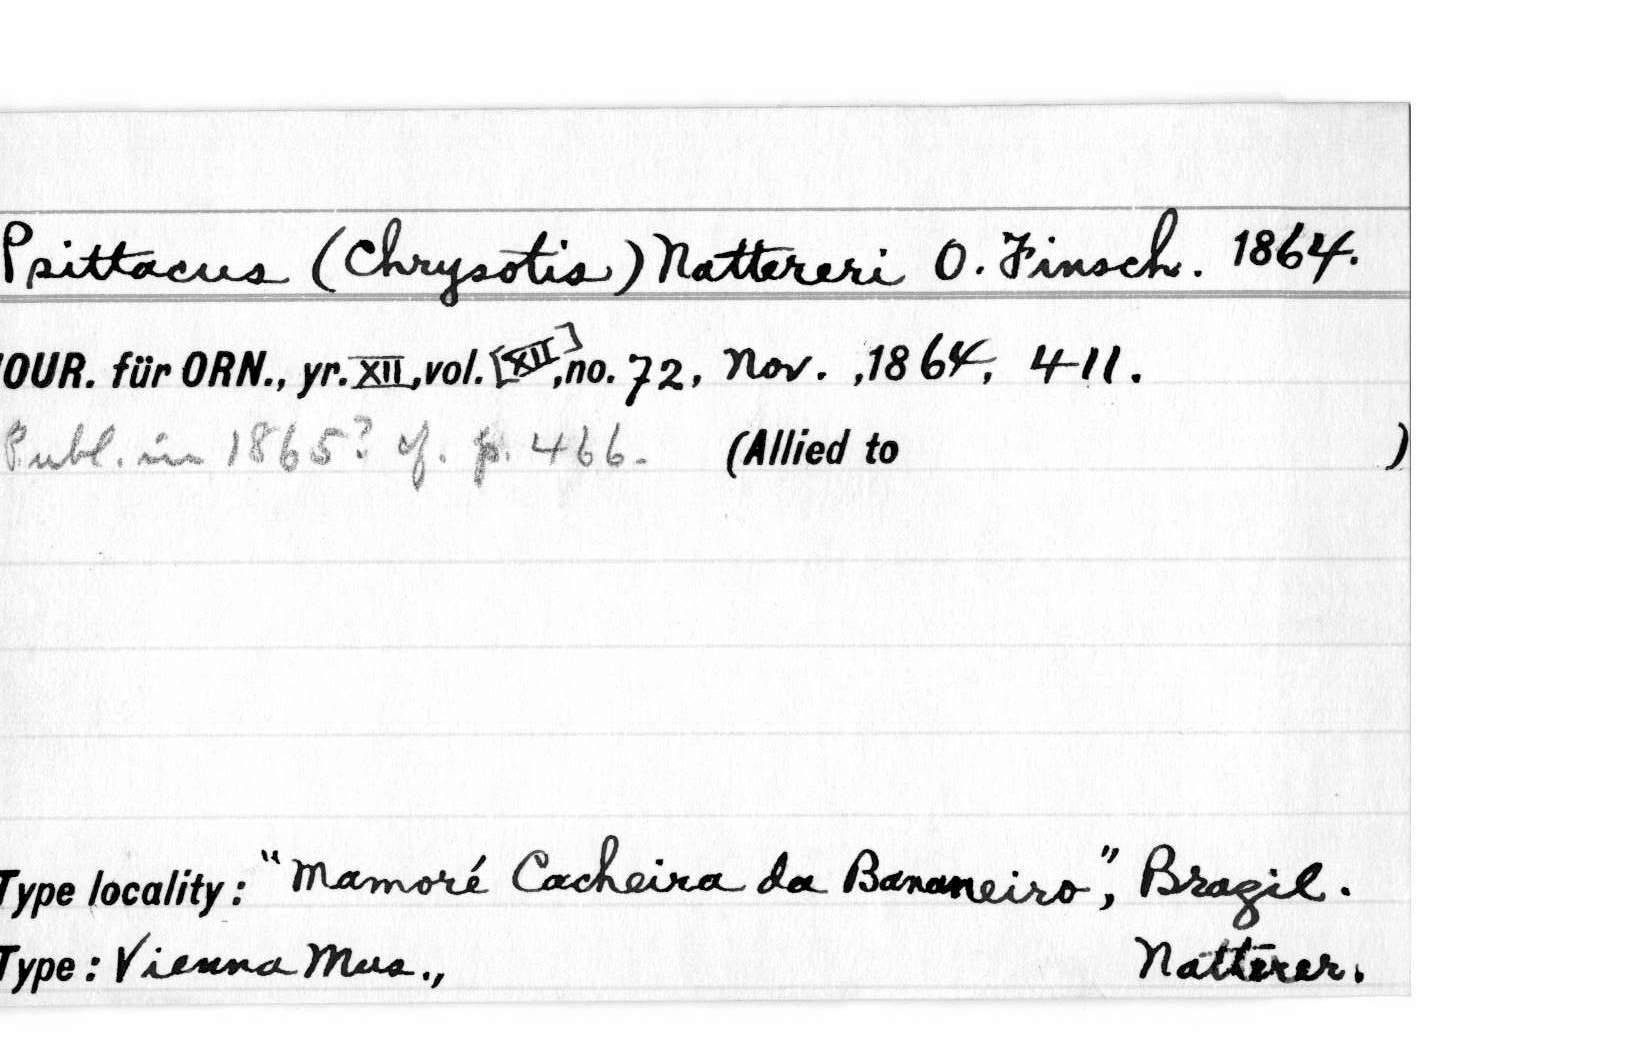 Psittacus (Chrysotis) Nattereri O. Finsch. 1864.
JOUR. für ORN., yr. XII, vol. [XII], no. 72, Nov. ,1864, 411.
Publ. in 1865? cf. p. 466. (Allied to )
Type locality: "Mamoré Cacheira da Bananeiro", Brazil.
Type: Vienna Mus., Natterer.